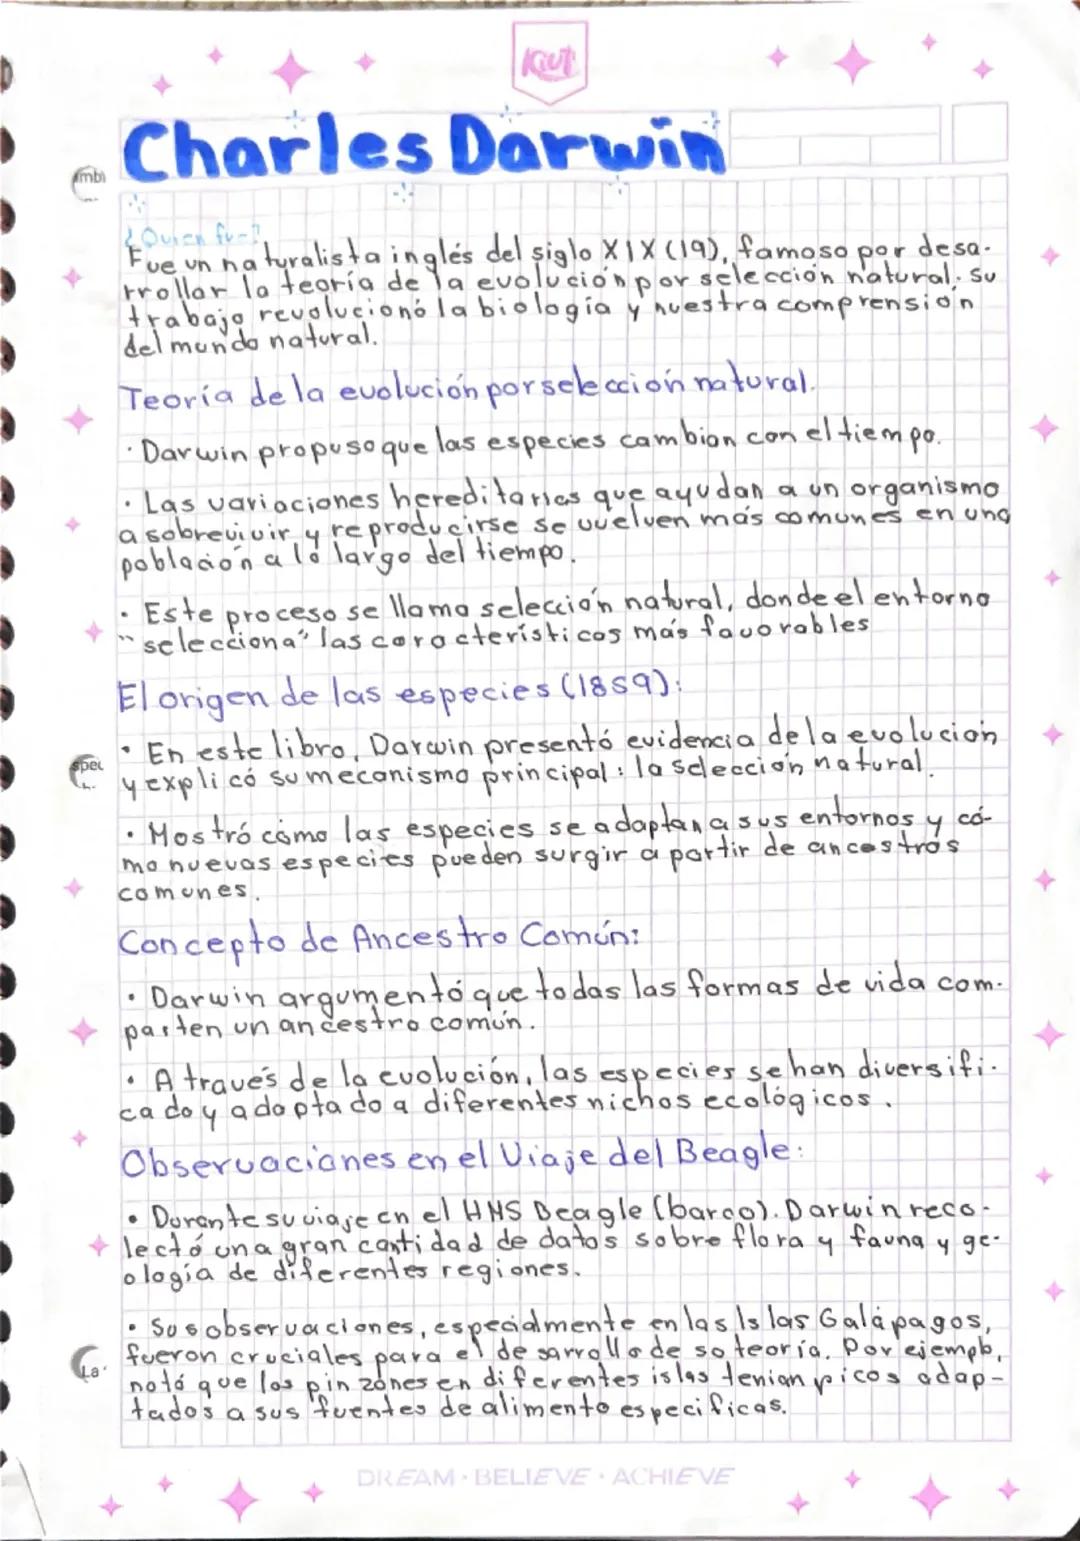 Kiut
Charles Darwin
¿Quien fue?
Fue un naturalista inglés del siglo XIX (19), famoso por desa-
rrollar la teoría de la evolución por selección natural. su
trabajo revolucionó la biología y nuestra comprensión
del mundo natural.
Teoría de la evolución por selección natural.
· Darwin propuso que las especies cambian con el tiempo.
· Las variaciones hereditarias que ayudan a un organismo
a sobrevivir y reproducirse se vuelven más comunes en una
población a lo largo del tiempo.
· Este proceso se llama selección natural, donde el entorno
"selecciona" las características más favorables
El origen de las especies (1859):
· En este libro, Darwin presentó evidencia de la evolución
y explicó su mecanismo principal: la selección natural.
· Mostró cómo las especies se adaptan a sus entornos y có-
mo nuevas especies pueden surgir a partir de ancestros
comunes.
Concepto de Ancestro Común:
· Darwin argumentó que todas las formas de vida com-
parten un ancestro común.
· A través de la evolución, las especies se han diversifi-
cado y adaptado a diferentes nichos ecológicos.
Observaciones en el Viaje del Beagle:
· Durante su viaje en el HMS Beagle (barco). Darwin reco-
lectó una gran cantidad de datos sobre flora y fauna y ge-
ología de diferentes regiones.
· Sus observaciones, especialmente en las Islas Galápagos,
fueron cruciales para el desarrollo de so teoría. Por ejemplo,
notó que los pinzones en diferentes islas tenian picos adap-
tados a sus fuentes de alimento especificas.
DREAM · BELIEVE · ACHIEVE